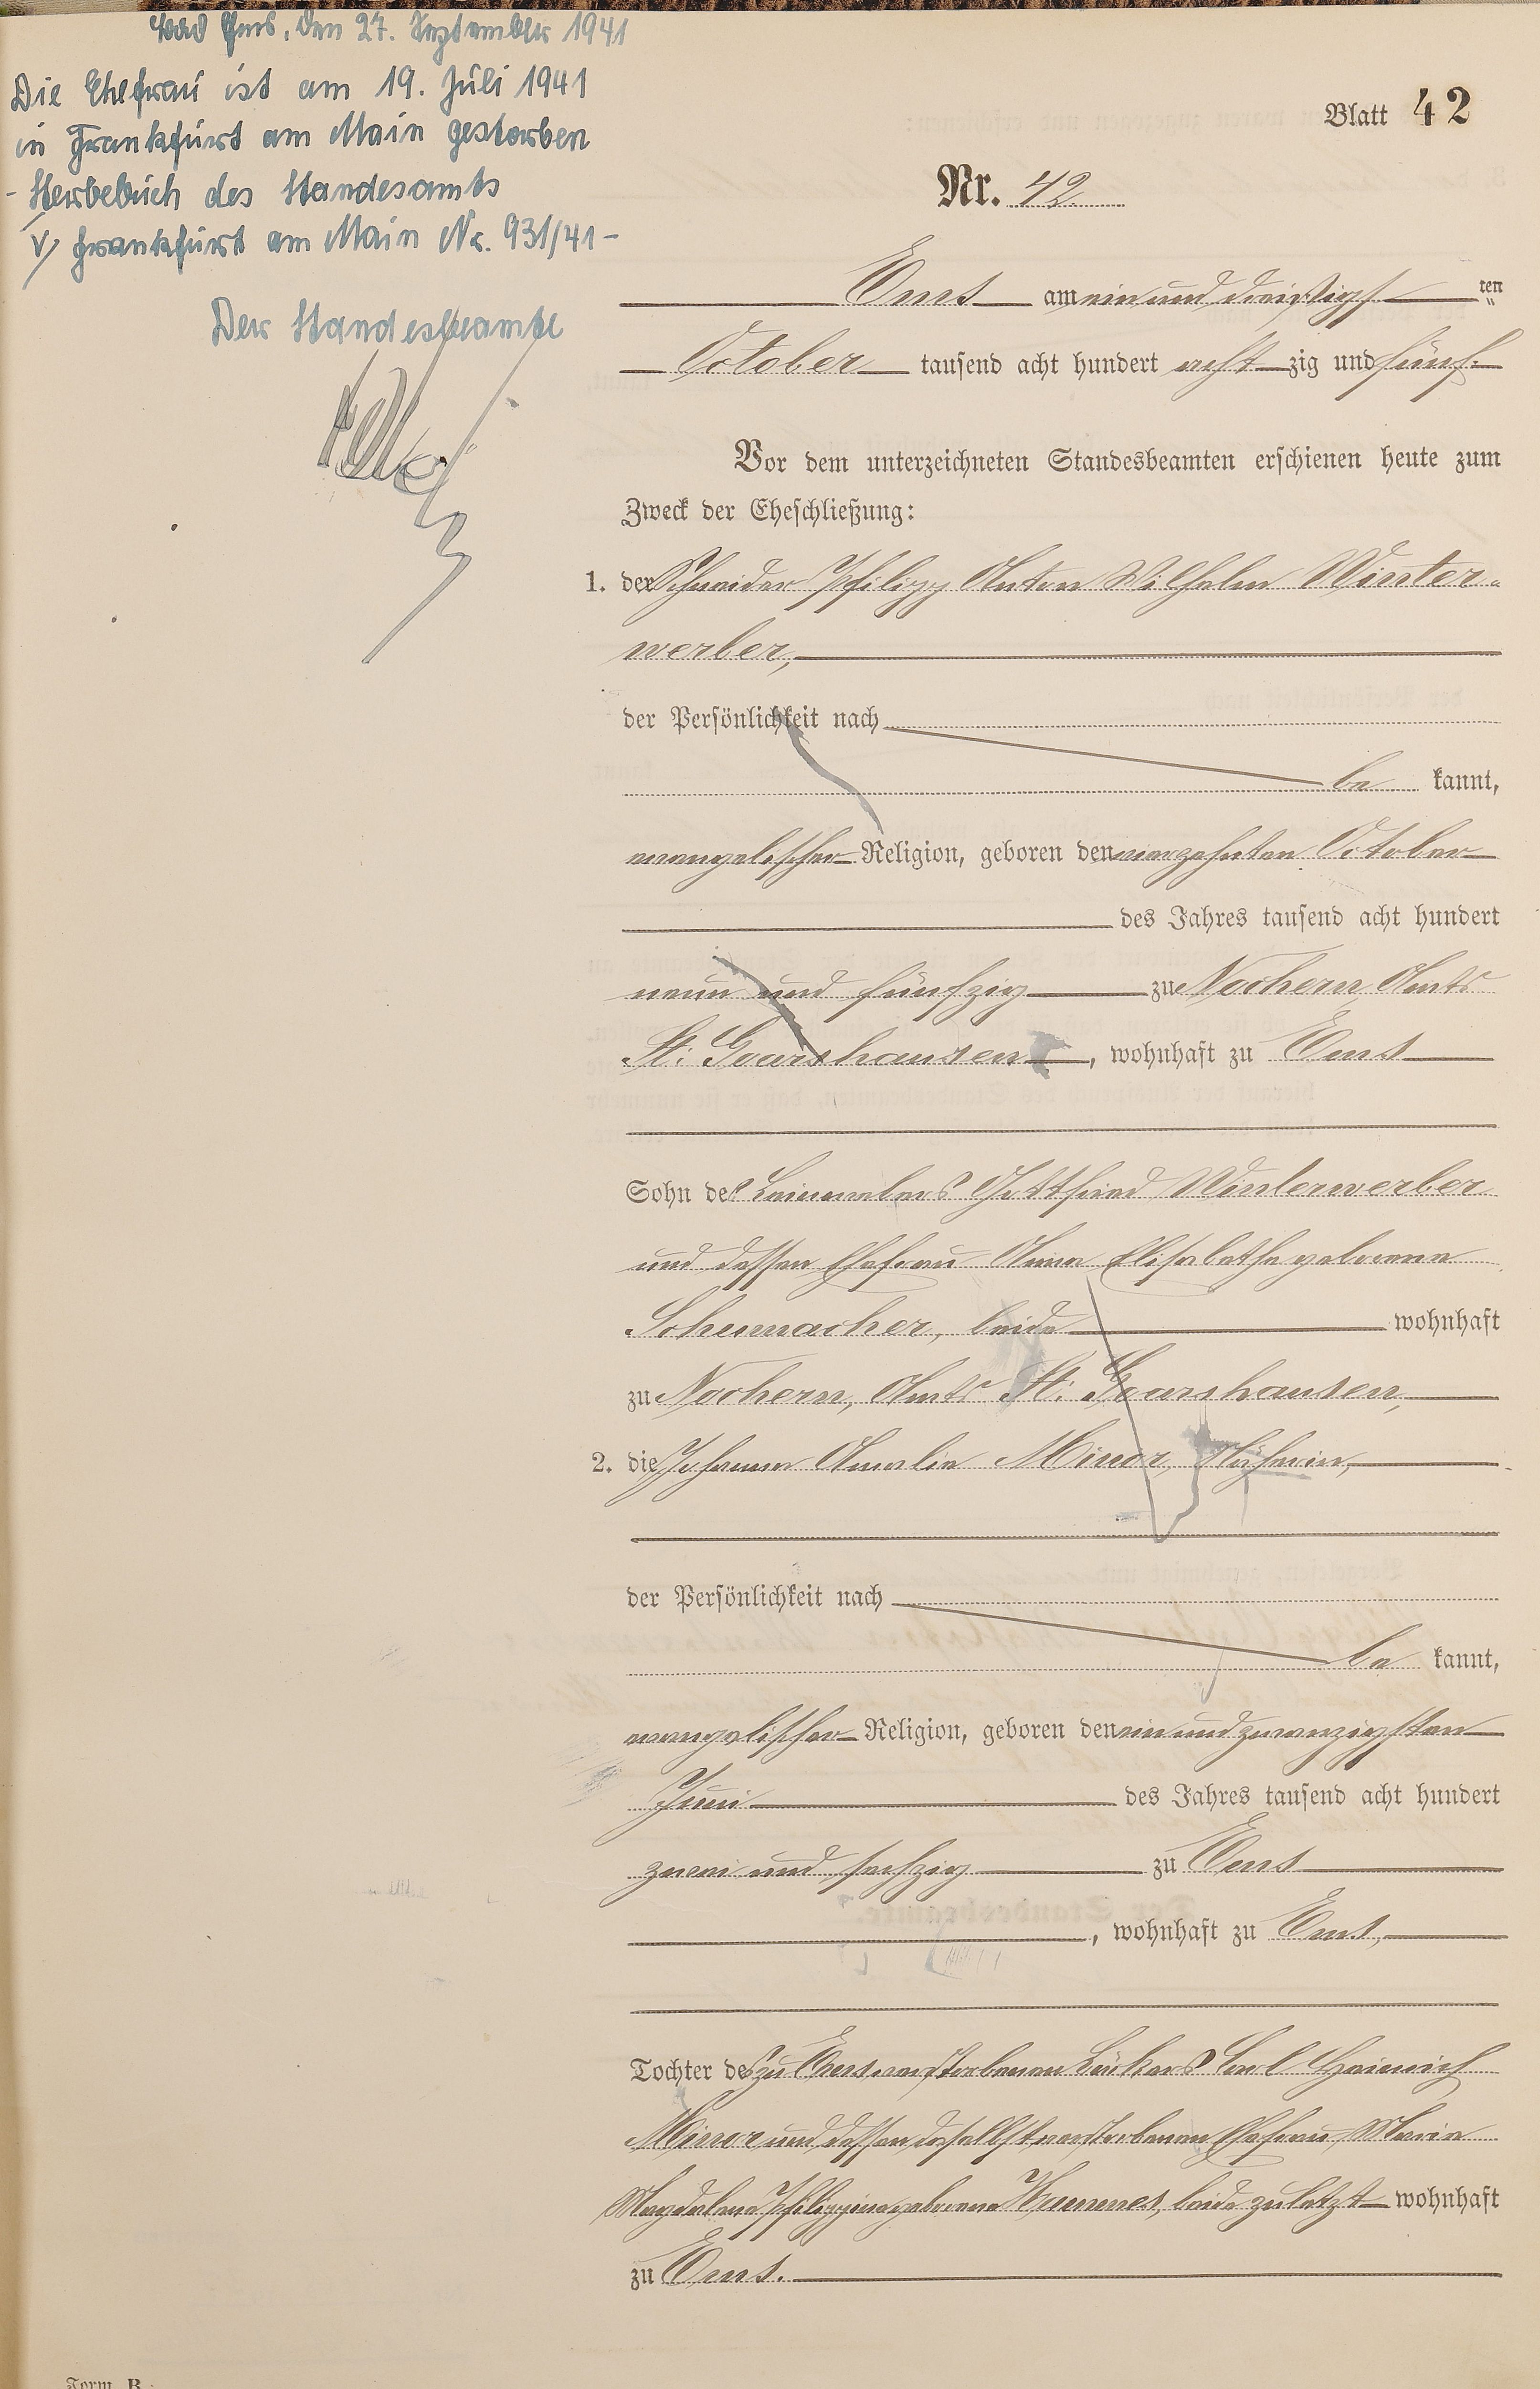 Bad Ems, den 27. September 1941
Die Ehefrau ist am 19. Juli 1941
in Frankfurt am Main gestorben
- Sterbebuch des Standesamts
V Frankfurt am Main Nr. 931/41 -
Der Standesbeamte
Blatt 42
Nr. 42.
Ems am ein und dreißigsten
October tausend acht hundert acht zig und fünf.
Vor dem unterzeichneten Standesbeamten erschienen heute zum
Zweck der Eheschließung:
1. der Schneider Philipp Anton Wilhelm Winter-
werber,
der Persönlichkeit nach
be kannt,
evangelischer Religion, geboren den vierzehnten October
des Jahres tausend acht hundert
neun und fünfzig zu Nochern, Amts
St. Goarshausen, wohnhaft zu Ems
Sohn des Leinwebers Gottfried Winterwerber
und dessen Ehefrau Anna Elisabethe geborene
Schumacher, beide wohnhaft
zu Nochern, Amts St. Goarshausen,
2. die Johanna Amalia Minor, Näherin,
der Persönlichkeit nach
be kannt,
evangelischer Religion, geboren den ein und zwanzigsten
Juni des Jahres tausend acht hundert
zwei und sechzig zu Ems
, wohnhaft zu Ems,
Tochter des zu Ems verstorbenen Bäckers Carl Heinrich
Minor und dessen daselbst verstorbenen Ehefrau, Maria
Magdalena Philippina geborene Hammes, beide zuletzt wohnhaft
zu Ems.
Form. B.